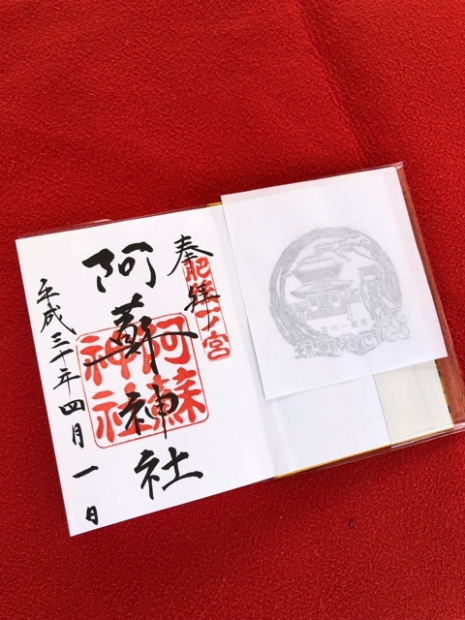 奉拝
肥後一宮
阿蘇神社
阿蘇
神社
平成三十年四月一日